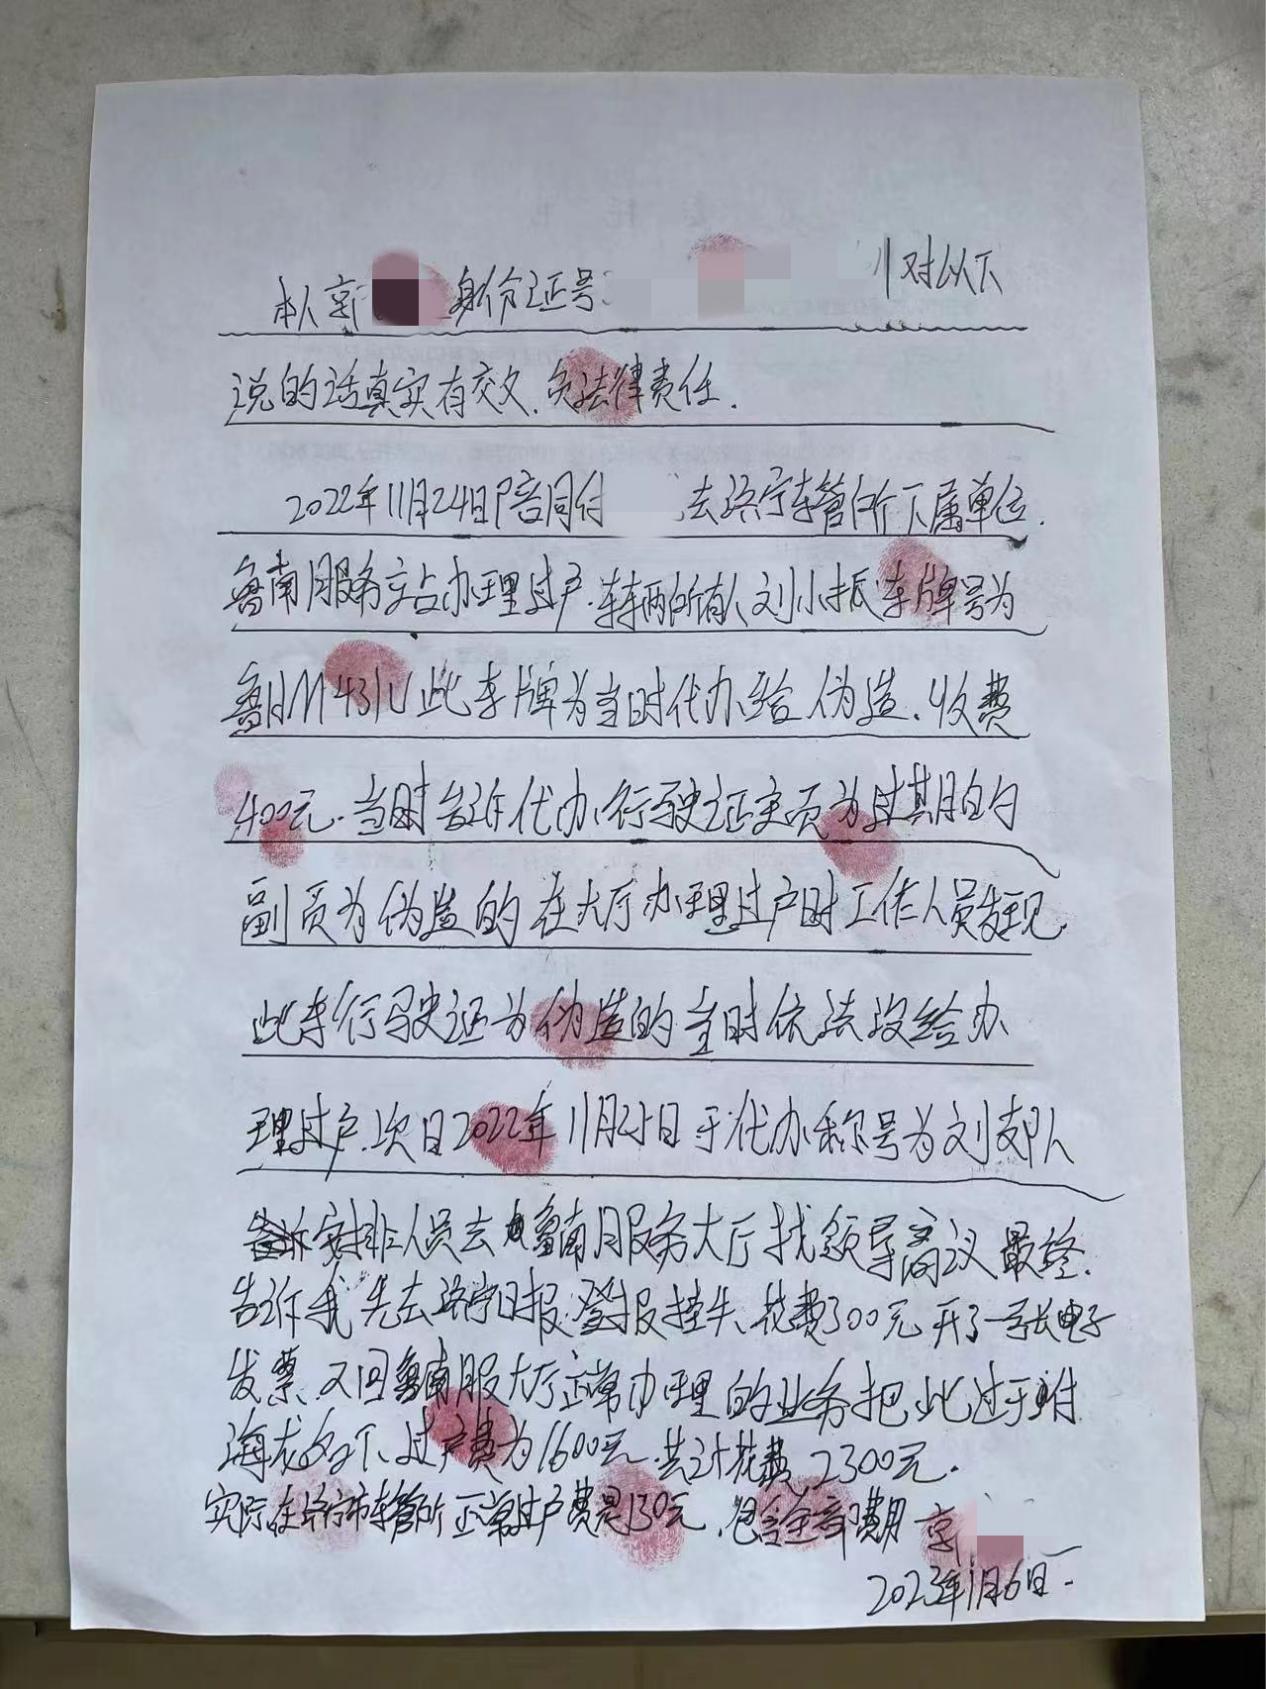 本人京 身份证号: 对以下
说的话真实有效.负法律责任.
2022年11月24日陪同付 去济宁车管所下属单位.
鲁南服务站办理过户.车辆所有人刘小振车牌号为
鲁HM431U此车牌为当时代办给伪造.收费
400元.当时告诉代办.行驶证主页为过期的
副页为伪造的在大厅办理过户时工作人员发现.
此车行驶证为伪造的当时依法没给办
理过户.次日2022年11月25日于代办称号为刘支队
安排人员去 鲁南服务大厅找领导商议最终.
告诉我先去济宁日报.登报挂失.花费300元开了一张电子
发票.又回鲁南服大厅正常办理的业务把此过于付
海龙名下.过户费为1600元.共计花费2300元.
实际在济宁市车管所正常过户费是130元.包含全部费用 京
2023年1月6日.